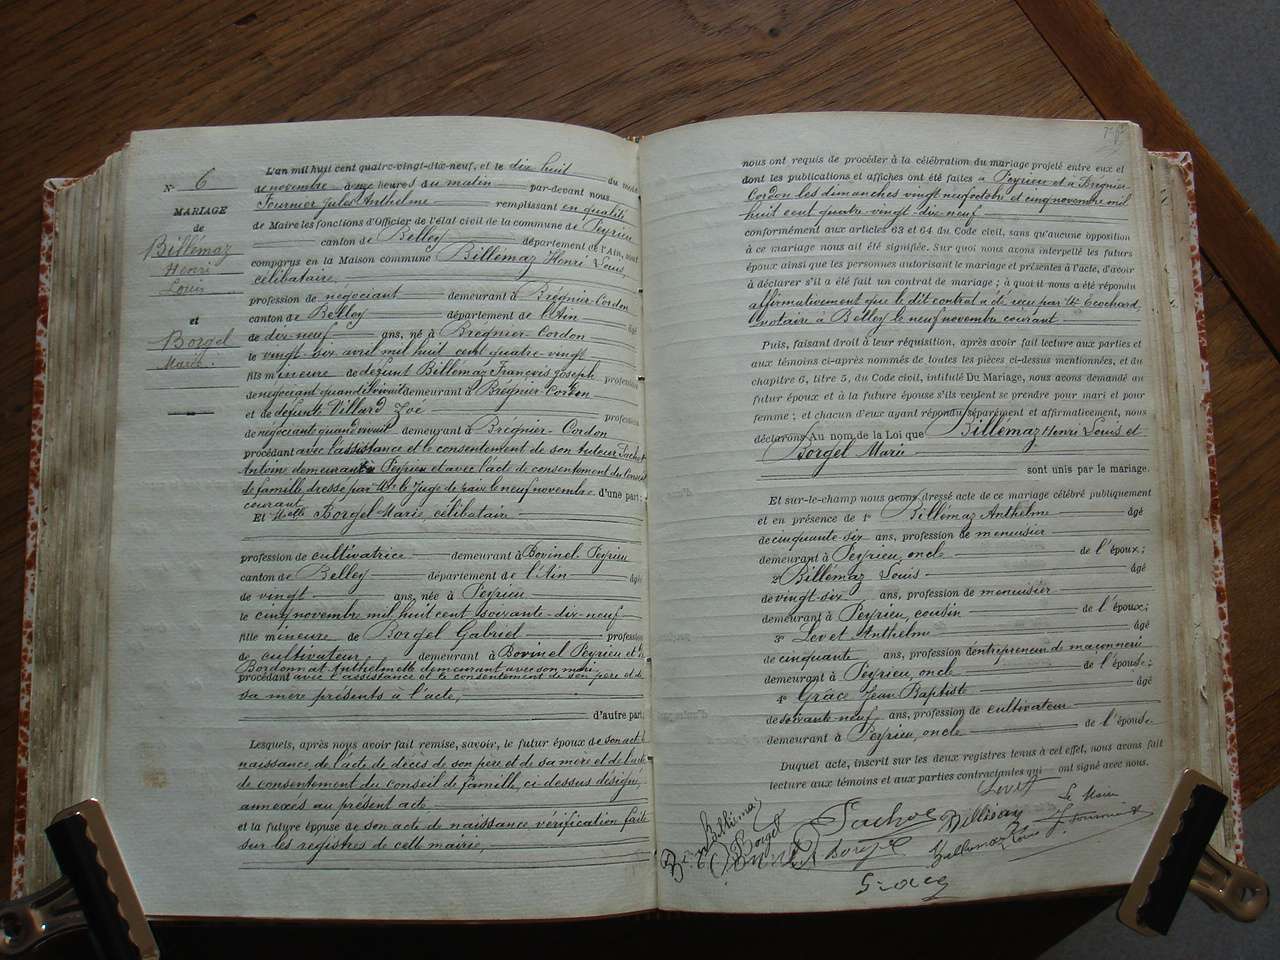 N° 6
MARIAGE
de
Billémaz
Henri
Louis
et
Borgel
Marie.
L'an mil huit cent quatre-vingt-dix-neuf, et le dix huit du mois
de novembre à heures du matin par-devant nous
Fournier Jules Anthelme remplissant en qualité
de Maire les fonctions d'Officier de l'état civil de la commune de Peyrieu
canton de Belley département de l'Ain, sont
comparus en la Maison commune Billémaz Henri Louis,
célibataire,
profession de négociant demeurant à Brégnier-Cordon
canton de Belley département de l'Ain âgé
de dix-neuf ans, né à Brégnier-Cordon
le vingt-six avril mil huit cent quatre-vingt
fils mineure de défunt Billémaz François Joseph profession
de négociant quand vivait demeurant à Brégnier-Cordon
et de défunte Villard Zoé profession
de négociante quand vivait demeurant à Brégnier-Cordon
procédant avec l'assistance et le consentement de son tuteur Sachet
Antoine demeurant à Peyrieu et avec l'acte de consentement du Conseil
de famille dressé par Mr le Juge de paix le neuf novembre d'une part;
courant
Et Melle Borgel Marie, célibataire
profession de cultivatrice demeurant à Bovinel Peyrieu
canton de Belley département de l'Ain âgée
de vingt ans, née à Peyrieu
le cinq novembre mil huit cent soixante-dix-neuf
fille mineure de Borgel Gabriel profession
de cultivateur demeurant à Bovinel Peyrieu et de
Bordonnat Anthelmette demeurant avec son mari
procédant avec l'assistance et le consentement de son père et de
sa mère présents à l'acte,
d'autre part;
Lesquels, après nous avoir fait remise, savoir, le futur époux de son acte de
naissance, de l'acte de décès de son père et de sa mère et de l'acte
de consentement du conseil de famille, ci-dessus désigné,
annexés au présent acte
et la future épouse de son acte de naissance vérification faite
sur les registres de cette mairie,
nous ont requis de procéder à la célébration du mariage projeté entre eux et
dont les publications et affiches ont été faites à Peyrieu et à Brégnier-
Cordon les dimanches vingt neuf octobre et cinq novembre mil
huit cent quatre-vingt-dix-neuf
conformément aux articles 63 et 64 du Code civil, sans qu'aucune opposition
à ce mariage nous ait été signifiée. Sur quoi nous avons interpellé les futurs
époux ainsi que les personnes autorisant le mariage et présentes à l'acte, d'avoir
à déclarer s'il a été fait un contrat de mariage; à quoi il nous a été répondu
affirmativement que le dit contrat a été reçu par Me Cochard,
notaire à Belley le neuf novembre courant.
Puis, faisant droit à leur réquisition, après avoir fait lecture aux parties et
aux témoins ci-après nommés de toutes les pièces ci-dessus mentionnées, et du
chapitre 6, titre 5, du Code civil, intitulé Du Mariage, nous avons demandé au
futur époux et à la future épouse s'ils veulent se prendre pour mari et pour
femme; et chacun d'eux ayant répondu séparément et affirmativement, nous
déclarons Au nom de la Loi que Billémaz Henri Louis et
Borgel Marie
sont unis par le mariage.
Et sur-le-champ nous avons dressé acte de ce mariage célébré publiquement
et en présence de 1° Billémaz Anthelme âgé
de cinquante-six ans, profession de menuisier
demeurant à Peyrieu, oncle de l'époux;
2° Billémaz Louis âgé
de vingt-six ans, profession de menuisier
demeurant à Peyrieu, cousin de l'époux;
3° Levet Anthelme âgé
de cinquante ans, profession d'entrepreneur de maçonnerie
demeurant à Peyrieu, oncle de l'épouse;
4° Grace Jean Baptiste âgé
de soixante-neuf ans, profession de cultivateur
demeurant à Peyrieu, oncle de l'épouse
Duquel acte, inscrit sur les deux registres tenus à cet effet, nous avons fait
lecture aux témoins et aux parties contractantes qui ont signé avec nous.
Levet
Le Maire
Billémaz
Borgel
Sachet
Billémaz
J. Fournier
Borgel
Billémaz Louis
Grace